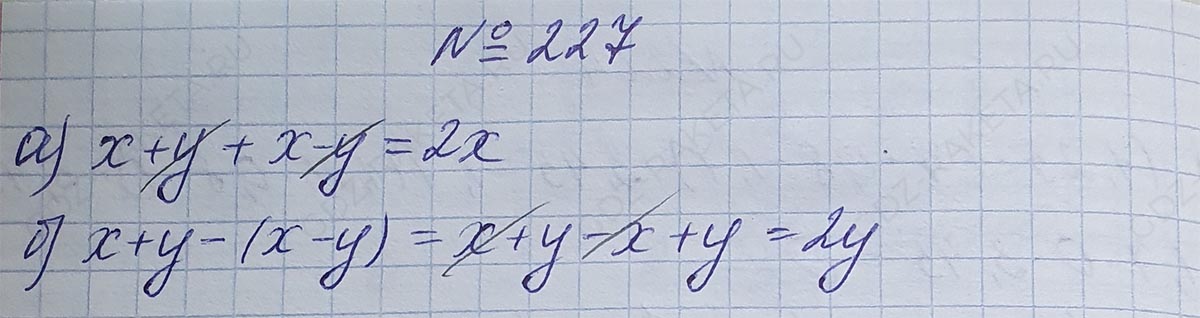 № 227
а) x+y + x-y = 2x
б) x+y - (x-y) = x+y-x+y = 2y